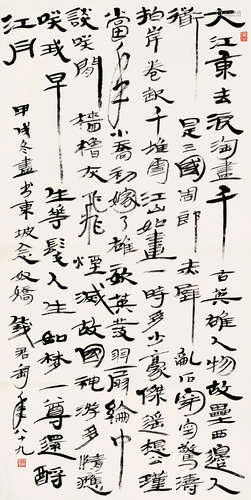 大江東去浪淘盡千古英雄人物故壘西邊人
道是三國周郎赤壁亂石穿空驚濤
拍岸卷起千堆雪江山如畫一時多少豪傑遙想公瑾
當年小喬初嫁了雄姿英發羽扇綸巾
談咲間檣櫓灰飛煙滅故國神游多情應
咲我早生華髮人生如梦一尊還酹
江月
甲戌冬盡書東坡念奴嬌 錢君匋年八十九